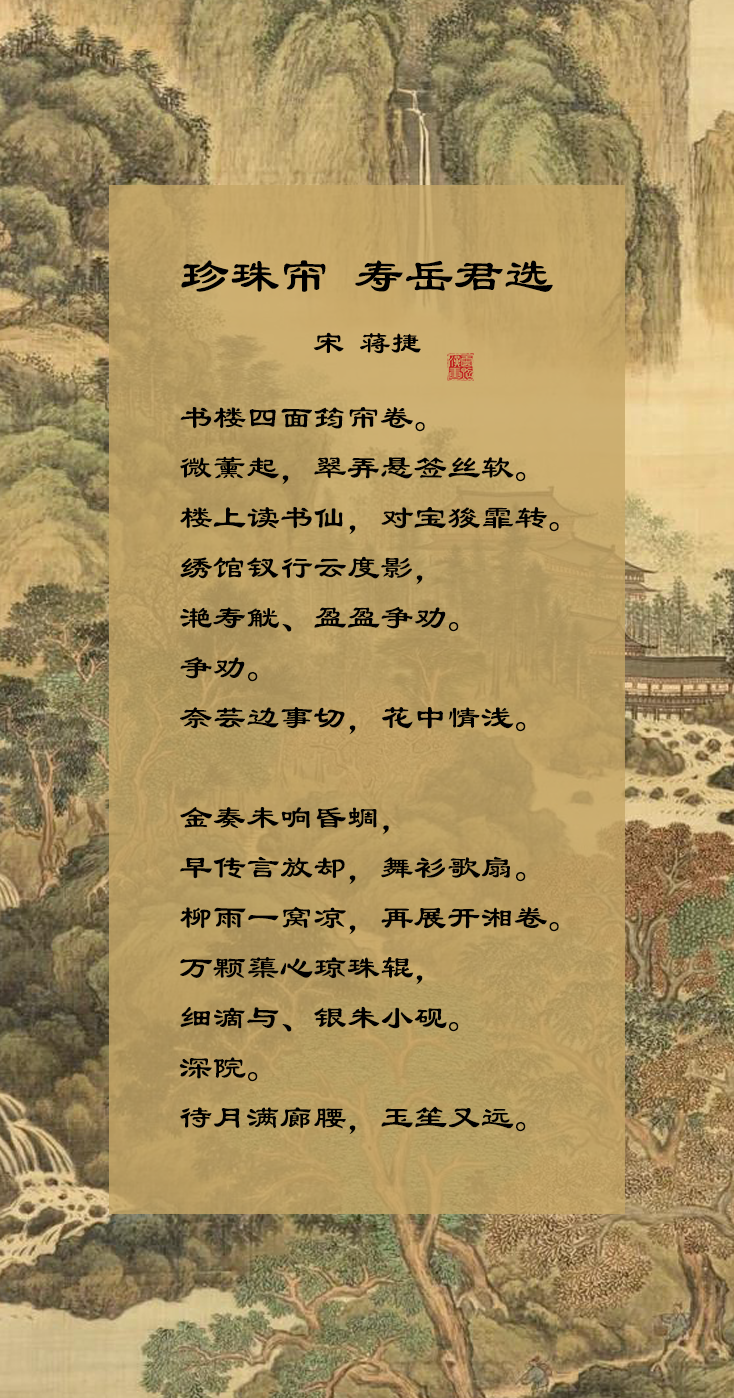 珍珠帘 寿岳君选
宋 蒋捷
书楼四面筠帘卷。
微薰起，翠弄悬签丝软。
楼上读书仙，对宝狻霏转。
绣馆钗行云度影，
滟寿觥、盈盈争劝。
争劝。
奈芸边事切，花中情浅。
金奏未响昏蜩，
早传言放却，舞衫歌扇。
柳雨一窝凉，再展开湘卷。
万颗蕖心琼珠辊，
细滴与、银朱小砚。
深院。
待月满廊腰，玉笙又远。